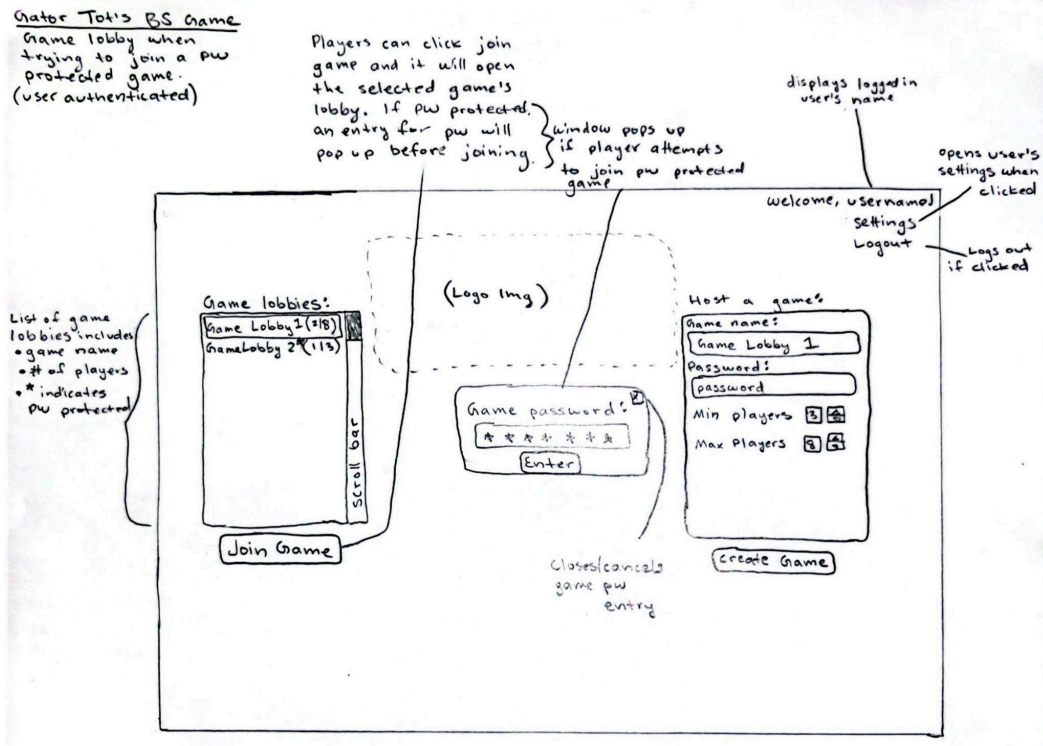 Gator Tot's BS Game
Game lobby when
trying to join a pw
protected game.
(user authenticated)
Players can click join
game and it will open
the selected game's
lobby. If pw protected,
an entry for pw will
pop up before joining.
window pops up
if player attempts
to join pw protected
game
displays logged in
user's name
opens user's
settings when
clicked
welcome, username1
settings
Logout
Logs out
if clicked
(Logo Img)
List of game
lobbies includes
• game name
• # of players
• * indicates
pw protected
Game lobbies:
Game Lobby 1 (2/8)
Game Lobby 2* (1/3)
Scroll bar
Join Game
Game password:
x
* * * * * * *
Enter
Closes/cancels
game pw
entry
Host a game:
Game name:
Game Lobby 1
Password:
password
Min players 3
Max Players 8
Create Game